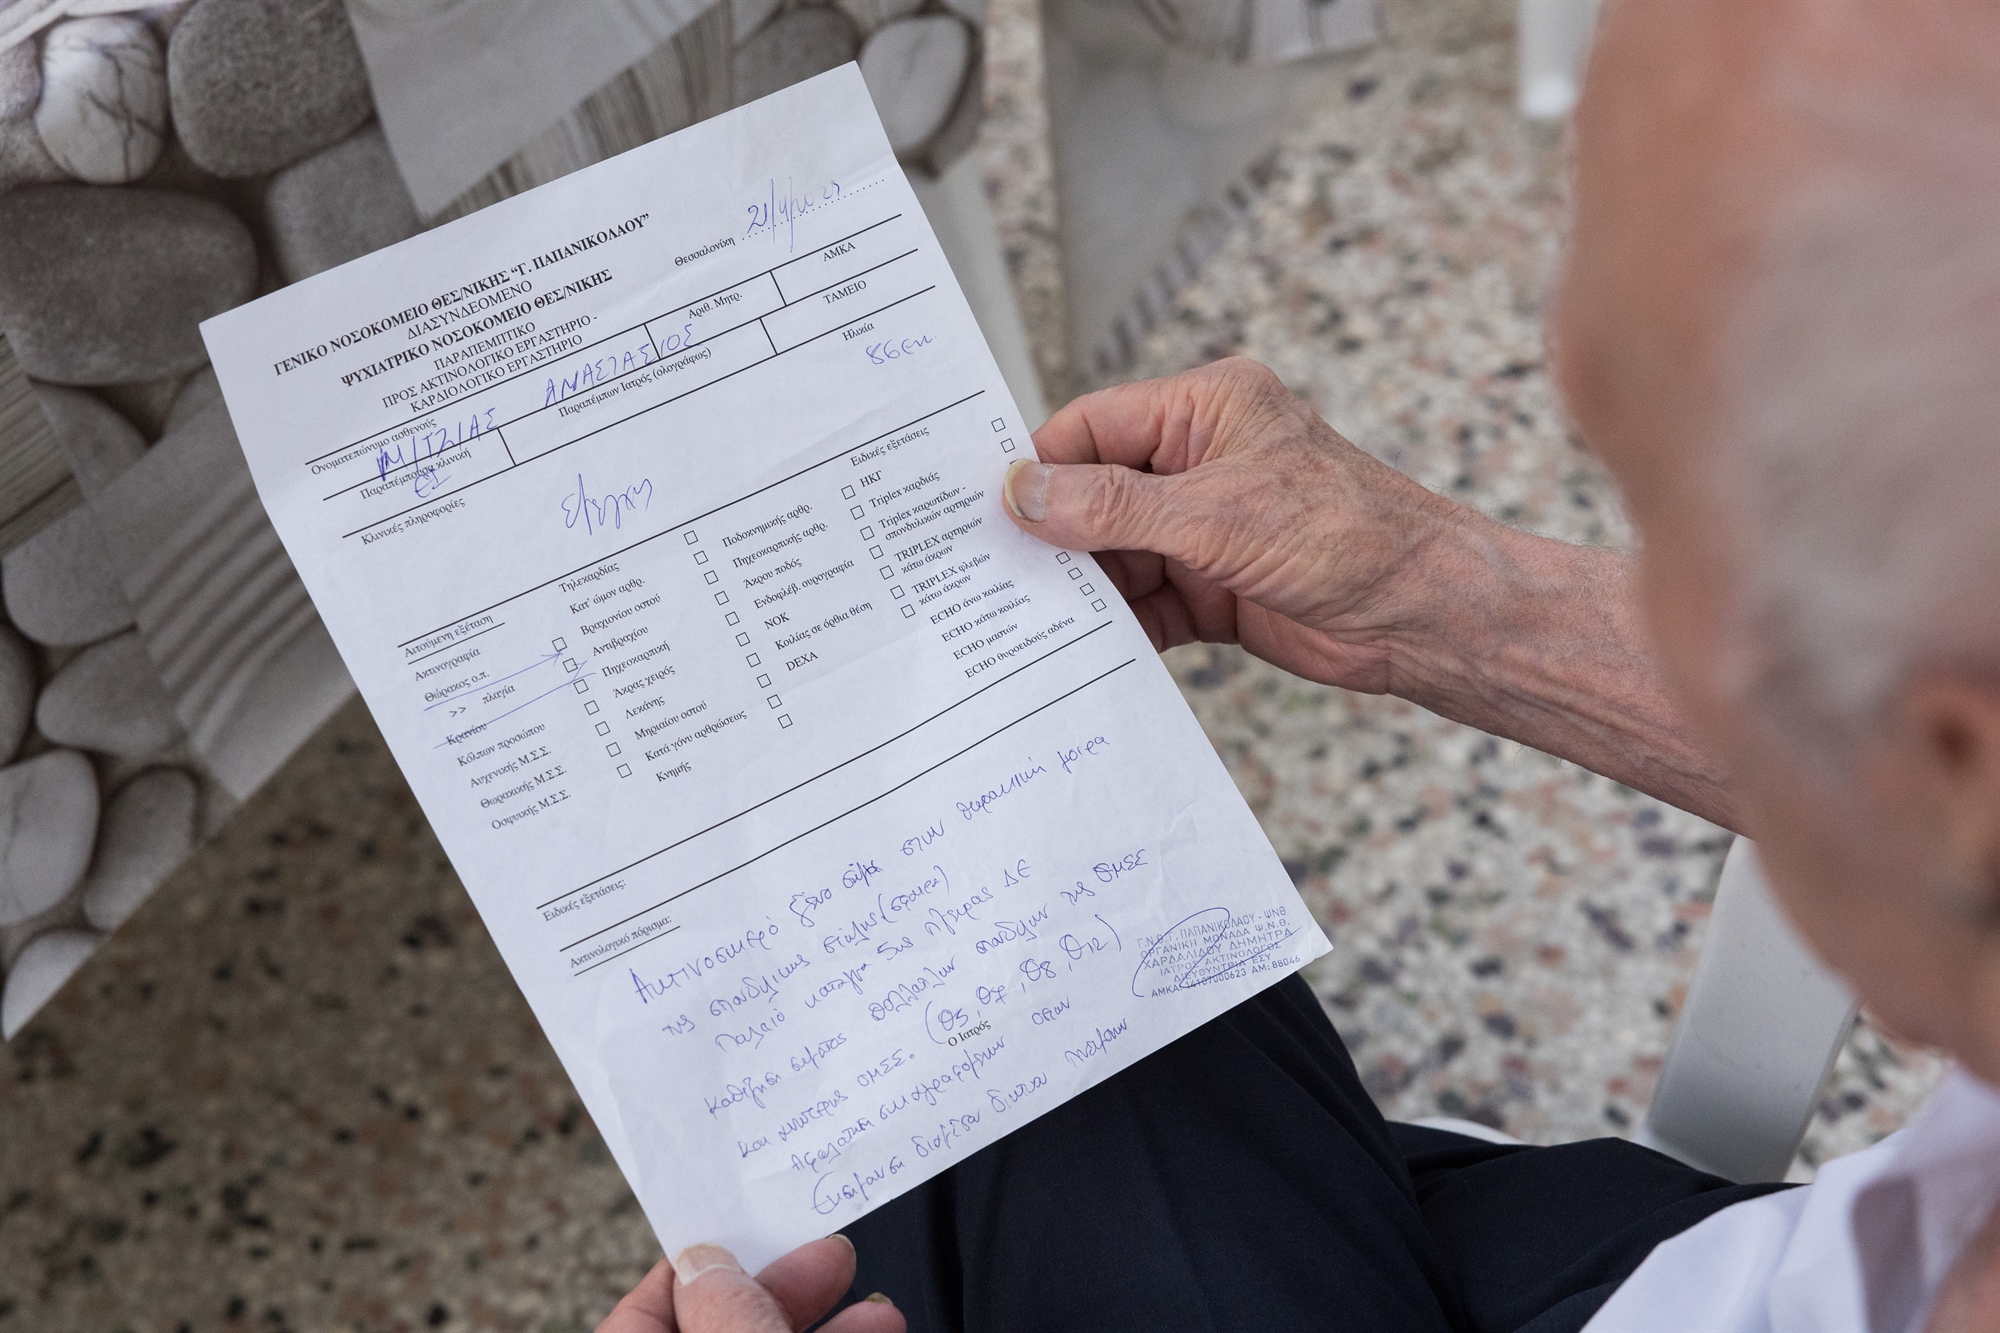 ΓΕΝΙΚΟ ΝΟΣΟΚΟΜΕΙΟ ΘΕΣ/ΝΙΚΗΣ “Γ. ΠΑΠΑΝΙΚΟΛΑΟΥ”
ΔΙΑΣΥΝΔΕΟΜΕΝΟ
ΨΥΧΙΑΤΡΙΚΟ ΝΟΣΟΚΟΜΕΙΟ ΘΕΣ/ΝΙΚΗΣ
ΠΑΡΑΠΕΜΠΤΙΚΟ
ΠΡΟΣ ΑΚΤΙΝΟΛΟΓΙΚΟ ΕΡΓΑΣΤΗΡΙΟ -
ΚΑΡΔΙΟΛΟΓΙΚΟ ΕΡΓΑΣΤΗΡΙΟ
Θεσσαλονίκη
Ονοματεπώνυμο ασθενούς
ΜΙΤΖΙΑΣ ΑΝΑΣΤΑΣΙΟΣ
Αριθ. Μητρ.
ΑΜΚΑ
Παραπέμπουσα κλινική
ΕΙ
Παραπέμπων Ιατρός (ολογράφως)
ΤΑΜΕΙΟ
Κλινικές πληροφορίες
Ηλικία
86
Αιτούμενη εξέταση
Ακτινογραφία
Θώρακος ο.π.
>> πλαγία
Κρανίου
Κόλπων προσώπου
Αυχενικής Μ.Σ.Σ.
Θωρακικής Μ.Σ.Σ.
Οσφυικής Μ.Σ.Σ.
Τηλεκαρδίας
Κατ’ ώμον αρθρ.
Βραχιονίου οστού
Αντιβραχίου
Πηχεοκαρπική
Άκρας χειρός
Λεκάνης
Μηριαίου οστού
Κατά γόνυ αρθρώσεως
Κνημής
Ποδοκνημικής αρθρ.
Πηχεοκαρπικής αρθρ.
Άκρου ποδός
Ενδοφλέβ. ουρογραφία
ΝΟΚ
Κοιλίας σε όρθια θέση
DEXA
Ειδικές εξετάσεις
ΗΚΓ
Triplex καρδιάς
Triplex καρωτίδων -
σπονδυλικών αρτηριών
TRIPLEX αρτηριών
κάτω άκρων
TRIPLEX φλεβών
κάτω άκρων
ECHO άνω κοιλίας
ECHO κάτω κοιλίας
ECHO μαστών
ECHO θυροειδούς αδένα
Ειδικές εξετάσεις:
Ακτινολογικό πόρισμα:
Ακτινοσκιερό ξένο σώμα στην θωρακική μοίρα
της σπονδυλικής στήλης (σφαίρα)
Παλαιό κάταγμα 5ης πλευράς ΔΕ
καθίζηση σώματος πολλαπλών σπονδύλων της ΘΜΣΣ
και ανώτερης ΟΜΣΣ. (Θ5, Θ7, Θ8, Θ12)
Ο Ιατρός
Γ.Ν.Θ. Γ. ΠΑΠΑΝΙΚΟΛΑΟΥ - ΨΝΘ
ΟΡΓΑΝΙΚΗ ΜΟΝΑΔΑ Ψ.Ν.Θ.
ΧΑΡΔΑΛΙΔΟΥ ΔΗΜΗΤΡΑ
ΙΑΤΡΟΣ ΑΚΤΙΝΟΛΟΓΟΣ
ΔΙΕΥΘΥΝΤΡΙΑ ΕΣΥ
ΑΜΚΑ: 14107000623 ΑΜ: 88046